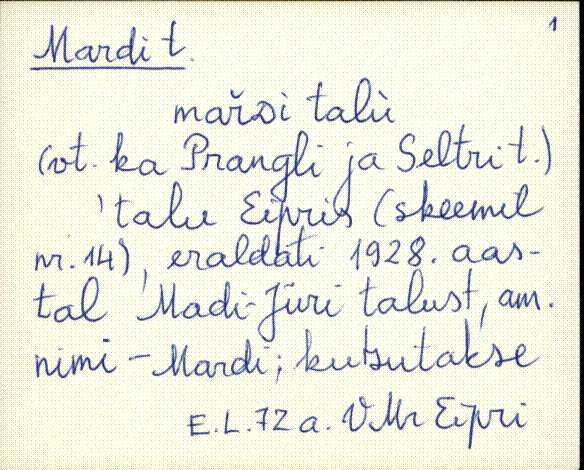 1
Mardi t.
mar̆di talù
(vt. ka Prangli ja Seltri t.)
'talu Eipris (skeemil
nr. 14), eraldati 1928. aas-
tal Madi-Jüri talust, am.
nimi - Mardi; kutsutakse
E.L. 72 a. VMr Eipri